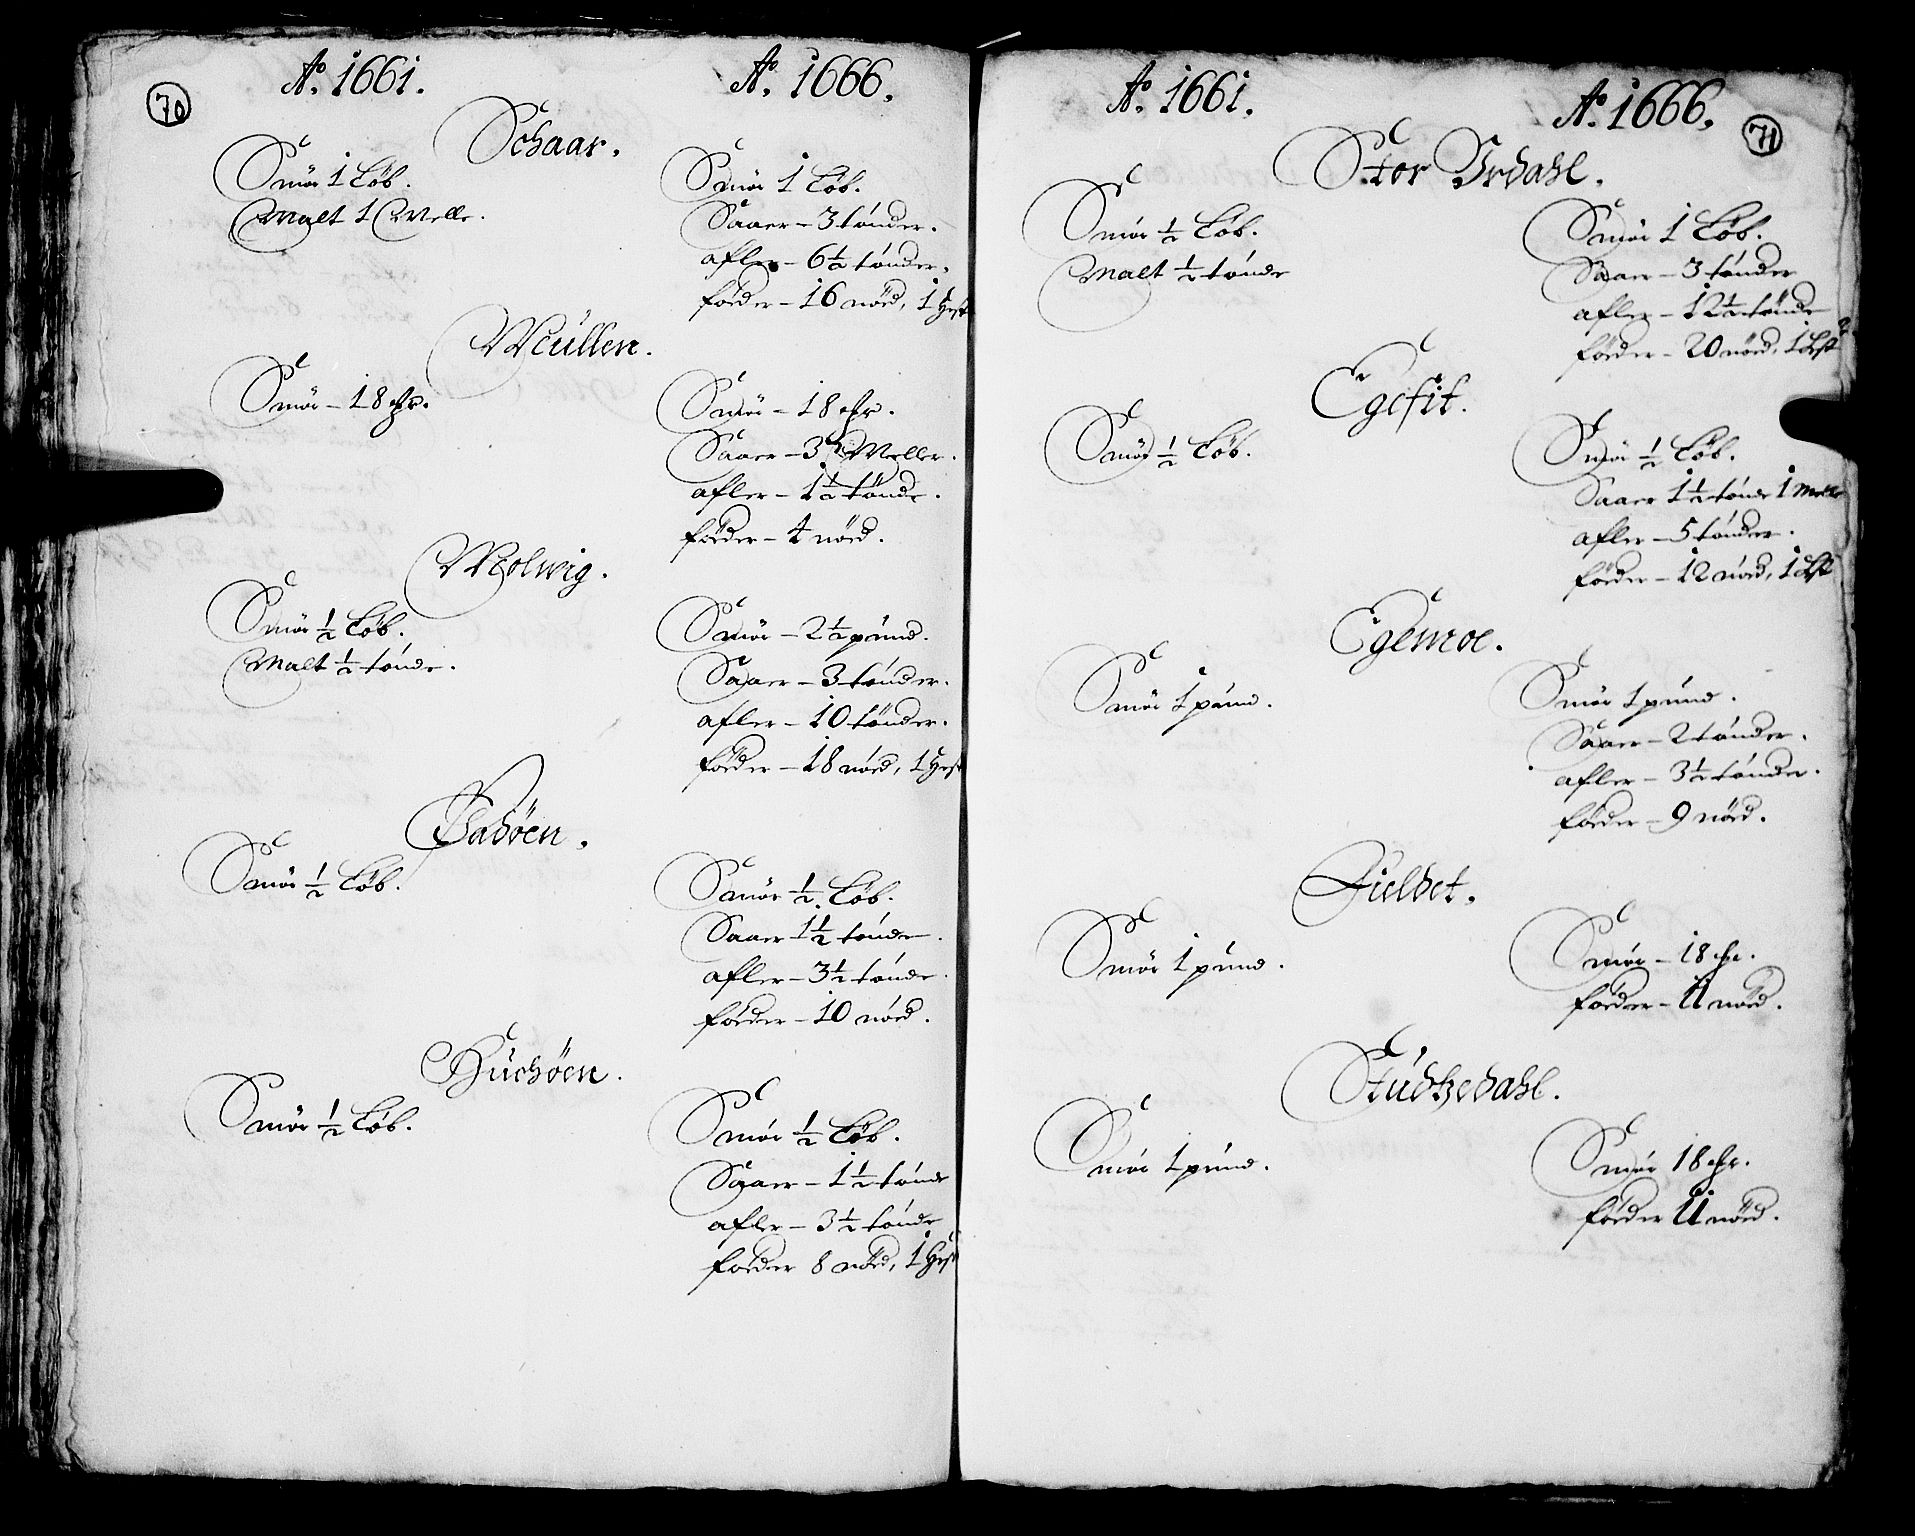 70
Ao. 1661.
Ao. 1666.
Schaar.
Smör 1 Löb.
Malt 1 Melle.
Smör 1 Löb.
Saaer – 3 tönder.
afler – 6½ tönder.
föeder – 16 nöed, 1 Hest
Mÿllen.
Smör – 18 mr.
Smör – 18 mr.
Saaer – 3 Meller.
afler – 1½ tönde.
föeder – 4 nöed.
Molwig.
Smör ½ Löb.
Malt ½ tönde.
Smör – 2½ pund.
Saaer – 3 tönder.
afler – 10 tönder.
föeder – 18 nöed, 1 Hest
Smör ½ Löb.
Smör ½ Löb.
Saaer 1½ tönde.
afler – 3½ tönde.
föeder – 10 nöed.
Smör ½ Löb.
Smör ½ Löb.
Saaer – 1½ tönde
afler – 3½ tönde
föeder 8 nöed, 1 Hest
71
Ao. 1661.
Ao. 1666.
Stor Irdahl.
Smör ½ Löb.
Malt ½ tönde
Smör 1 Löb.
Saaer – 3 tönder
afler – 12½ tönde
föeder – 20 nöed, 1 Hest
Egefit.
Smör ½ Löb.
Smör ½ Löb.
Saaer 1½ tönde 1 Melle
afler – 5 tönder.
föeder – 12 nöed, 1 Hest
Egemoe.
Smör 1 pund.
Smör 1 pund.
Saaer – 2 tönder.
afler – 3½ tönder.
föeder – 9 nöed.
Fieldet.
Smör 1 pund.
Smör – 18 mr.
föeder – 11 nöed.
Smör 1 pund.
Smör 18 mr.
föeder 11 nöed.